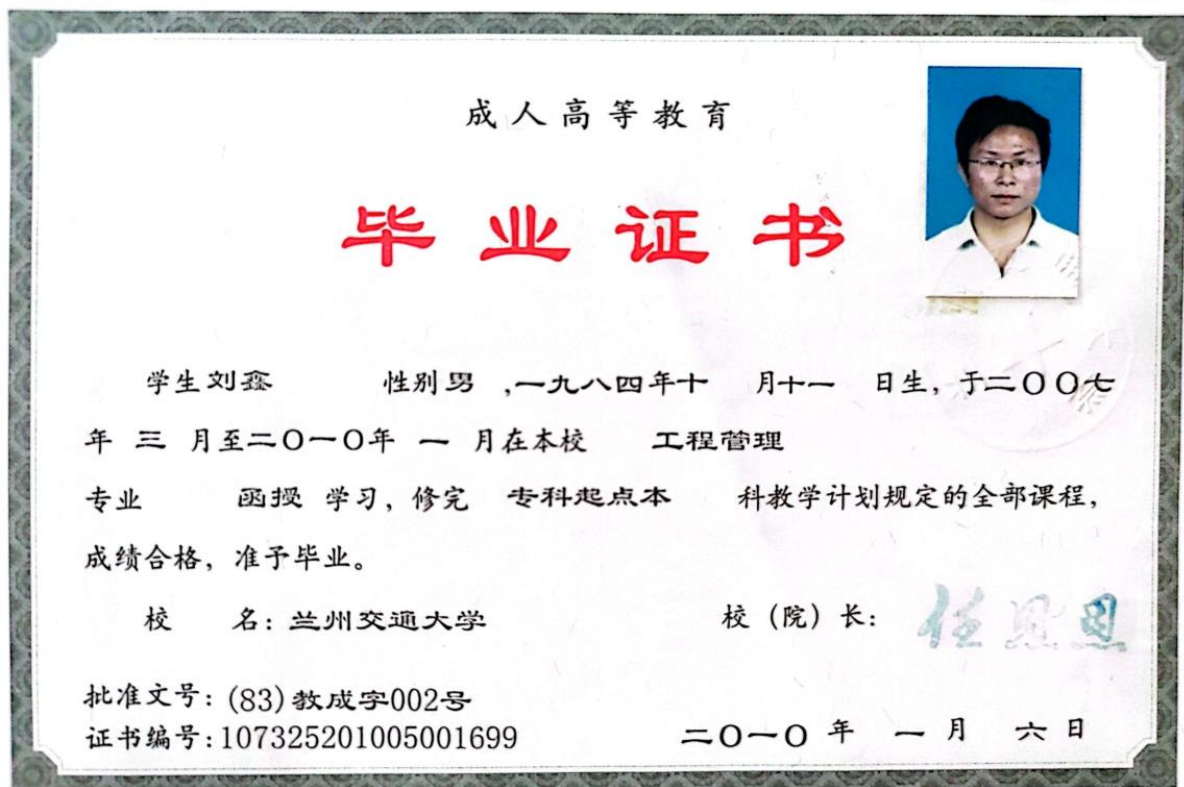 成人高等教育
毕业证书
学生刘鑫 性别男 ,一九八四年十 月十一 日生, 于二〇〇七
年 三 月至二〇一〇年 一 月在本校 工程管理
专业 函授 学习, 修完 专科起点本 科教学计划规定的全部课程,
成绩合格, 准予毕业。
校 名: 兰州交通大学 校 (院) 长: 任恩恩
批准文号: (83)教成字002号
证书编号:107325201005001699 二〇一〇 年 一 月 六 日